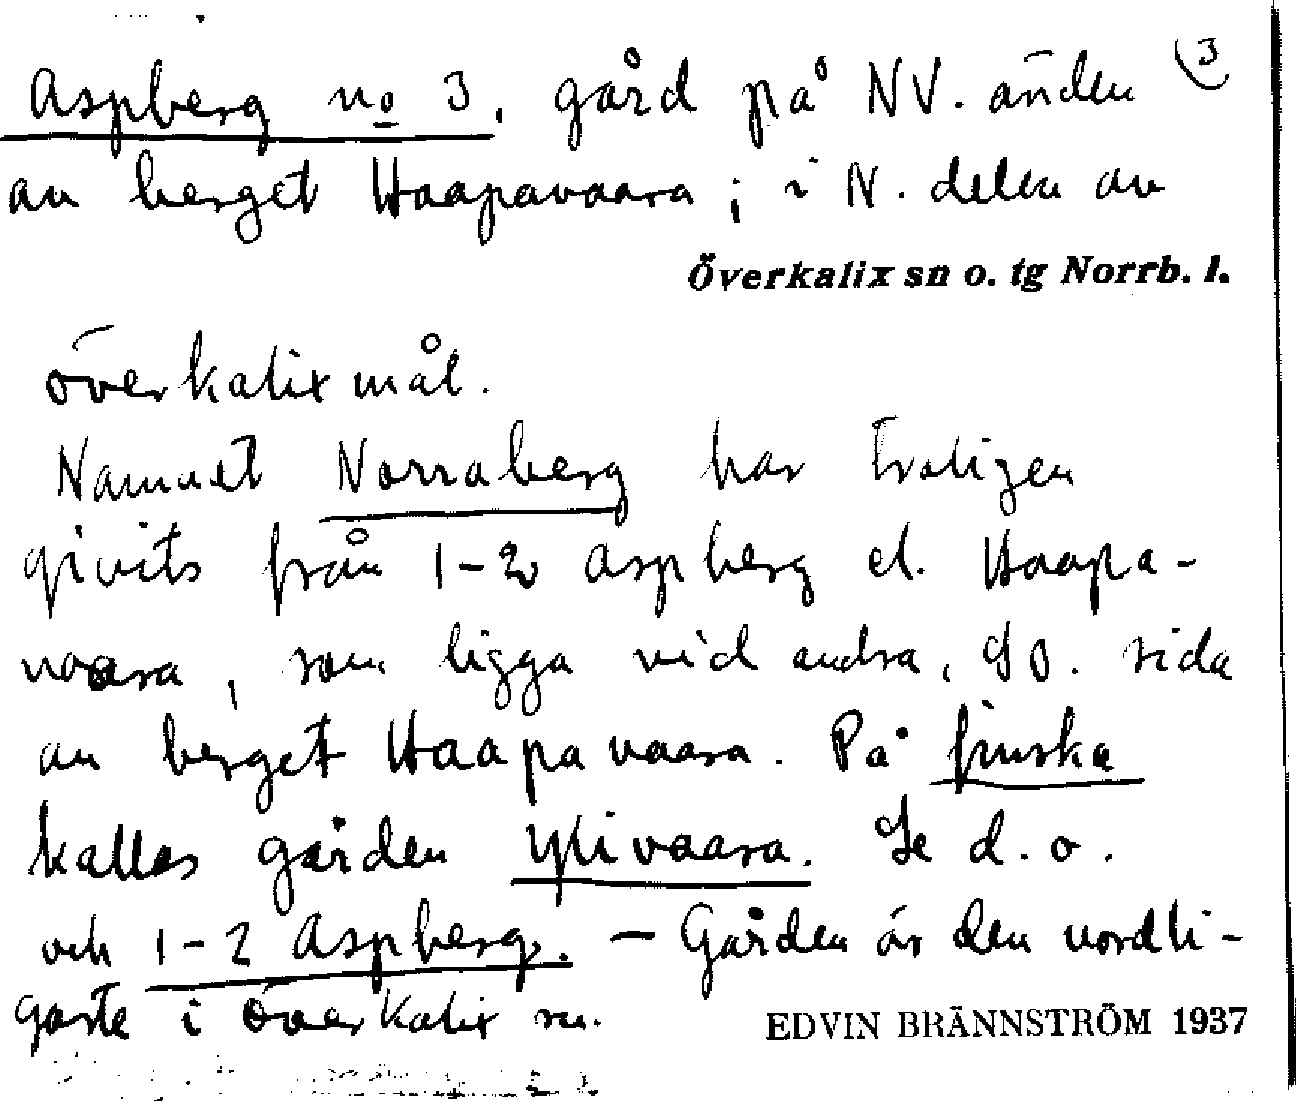 Aspberg no 3, gård på NV. änden 3
av berget Haapavaara; i N. delen av
Överkalix sn o. tg Norrb. l.
överkalixmål.
Namnet Norraberg har troligen
givits från 1-2 Aspberg el. Haapa-
vaara, som ligga vid andra, SO. sida
av berget Haapavaara. På finska
kallas gården Ylivaara. Se d. o.
och 1-2 Aspberg. — Gården är den nordli-
gaste i Överkalix sn.
EDVIN BRÄNNSTRÖM 1937